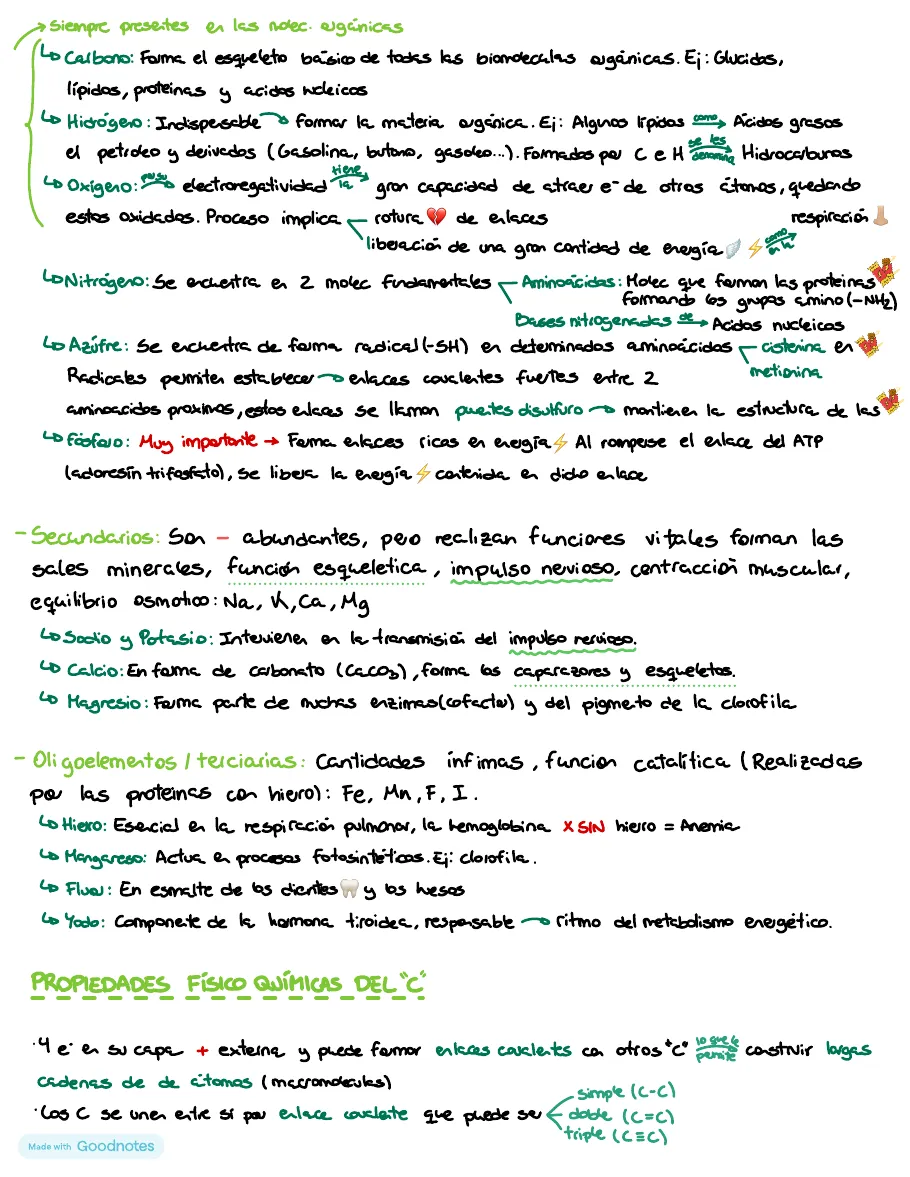 → Siempre presentes en las molec. orgánicas
↳ Carbono: Forma el esqueleto básico de todas las biomoleculas orgánicas. Ej: Glúcidos,
lípidos, proteinas y acidos nucleicos
↳ Hidrógeno: Indispensable → formar la materia orgánica. Ej: Algunos lípidos como → Ácidos grasos
el petroleo y derivados (Gasolina, butano, gasoleo...). Formados por C e H se les denomina → Hidrocarburos
↳ Oxígeno: por su → electronegatividad tiene la → gran capacidad de atraer e⁻ de otros átomos, quedando
estos oxidados. Proceso implica rotura 💔 de enlaces respiración 👃
liberación de una gran cantidad de energía ⚡ como en la →
↳ Nitrógeno: Se encuentra en 2 molec fundamentales Aminoácidos: Molec que forman las proteinas
formando los grupos amino (-NH₂)
Bases nitrogenadas de → Acidos nucleicos
↳ Azúfre: Se encuentra de forma radical (-SH) en determinados aminoácidos cisteina en
Radicales permiten establecer → enlaces covalentes fuertes entre 2 metionina
aminoacidos proximos, estos enlaces se llaman puentes disulfuro → mantienen la estructura de las
↳ Fósforo: Muy importante → Forma enlaces ricos en energía ⚡ Al romperse el enlace del ATP
(adenosín trifosfato), se libera la energía ⚡ contenida en dicho enlace
- Secundarios: Son - abundantes, pero realizan funciones vitales forman las
sales minerales, función esqueletica, impulso nervioso, contracción muscular,
equilibrio osmotico: Na, K, Ca, Mg
↳ Sodio y Potasio: Intervienen en la transmisión del impulso nervioso.
↳ Calcio: En forma de carbonato (CaCO₃), forma los caparazones y esqueletos.
↳ Magnesio: Forma parte de muchas enzimas (cofactor) y del pigmeto de la clorofila
- Oligoelementos / terciarios: Cantidades ínfimas, funcion catalítica (Realizadas
por las proteinas con hierro): Fe, Mn, F, I.
↳ Hierro: Esencial en la respiración pulmonar, la hemoglobina X SIN hierro = Anemia
↳ Manganeso: Actua en procesos fotosintéticos. Ej: clorofila.
↳ Fluor: En esmalte de los dientes 🦷 y los huesos
↳ Yodo: Componente de la hormona tiroidea, responsable → ritmo del metabolismo energético.
PROPIEDADES FÍSICO QUÍMICAS DEL "C"
·4 e⁻ en su capa + externa y puede formar enlaces covalentes con otros "C" lo que le permite → construir largas
cadenas de de átomos (macromoleculas)
·Los C se unen entre sí por enlace covalente que puede ser simple (C-C)
doble (C=C)
triple (C≡C)
Made with Goodnotes